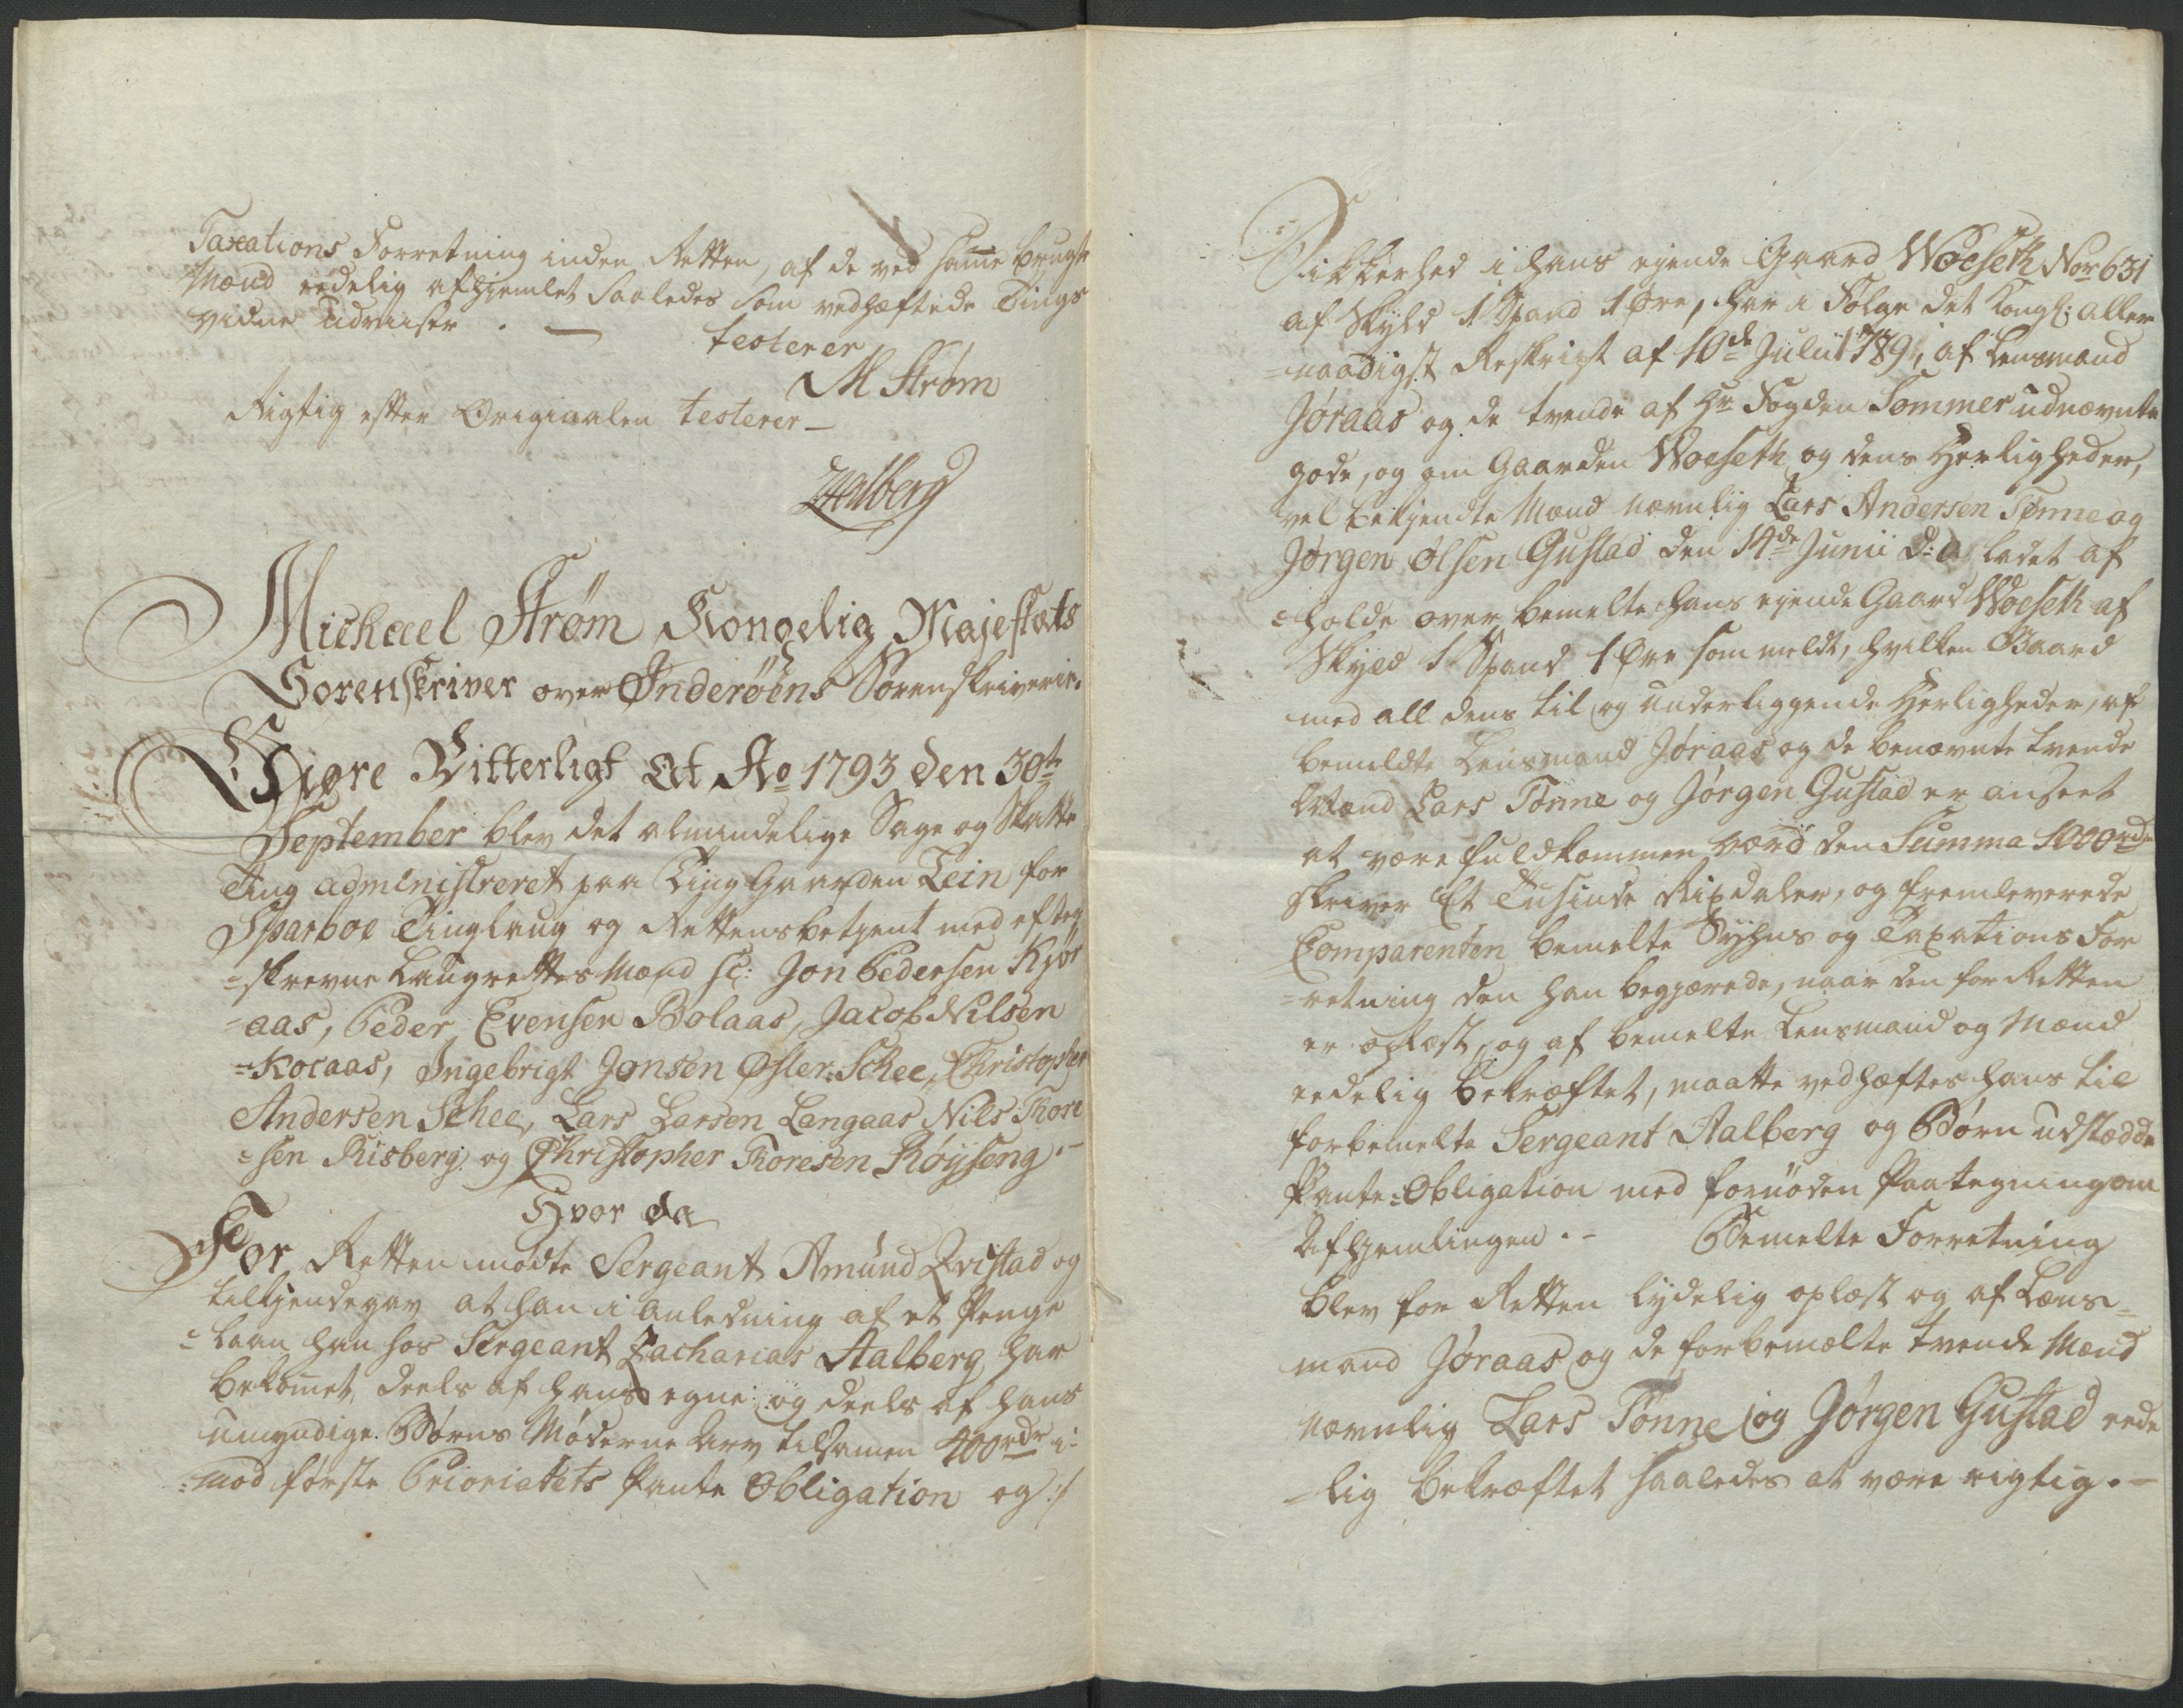 Taxations Forretning inden Retten, af de ved samme brugte
Mænd eedelig afhjemlet saaledes som vedhæftede Tings
vidne Udviiser. —
testerer
M Strøm
Rigtig efter Originalen testerer —
ZAalberg
Michael Strøm Kongelig Majestæts
Sorenskriver over Inderøens Sorenskriverie.
Giøre Vitterligt At Ao 1793 den 30te
September blev det almindelige Sage og Skatte
Ting administreret paa Ting Gaarden Lein for
Sparboe Tinglaug og Rettens betjent med efter
=skrevne Laugrettes Mænd sc: Jon Pedersen Kjør
=aas, Peder Evensen Bolaas, Jacob Nilsen
=Koraas, Ingebrigt Jonsen Øster Schee, Christopher
Andersen Schee, Lars Larsen Langaas Nils Thore
=sen Riisberg og Christopher Thoresen Røysseng. —
Hvor da
For Retten mødte Sergeant Amund Qvistad og
tilkjendegav at han i Anledning af et Penge
=Laan han hos Sergeant Zacharias Aalberg har
bekommet, deels af hans egne og deels af hans
umyndige Børns Møderne Arv tilsamen 400rdr i
=mod første Prioriatets Pante Obligation og :/
Sikkerhed i hans ejende Gaard Woeseth Nor 631
af Skyld 1 Spand 1 Øre, har i Følge det Kongl: aller
=naadigst Reskript af 10de Julii 1789, af Lensmand
Jøraas og de tvende af Hr Fogden Sommer udnævnte
gode, og om Gaarden Woeseth og dens Herligheder,
vel bekjendte Mænd navnlig Lars Andersen Tønne og
Jørgen Olsen Gustad den 14de Junii d: a ladet af
=holde over bemelte hans ejende Gaard Woeseth af
Skyld 1 Spand 1 Øre som meldt, hvilken Gaard
med all dens til og underliggende Herligheder, af
bemeldte Lensmand Jøraas og de benævnte tvende
Mænd Lars Tønne og Jørgen Gustad er anseet
at være fuldkommen værd den Summa 1000rdr
skriver Et Tusinde Rixdaler, og fremleverede
Comparenten bemelte Syhns og Taxations For
=retning den han begjærede, naar den for Retten
er oplæst, og af bemelte Lensmand og Mænd
eedelig bekræftet, maatte vedhæftes hans til
forbemelte Sergeant Aalberg og Børn udstædde
Pante-Obligation med fornøden Paategning om
Afhjemlingen. — Bemelte Forretning
blev for Retten lydelig oplæst og af Lens=
mand Jøraas og de forbemælte tvende Mænd
navnlig Lars Tønne og Jørgen Gustad eede
=lig bekræftet saaledes at være rigtig. —